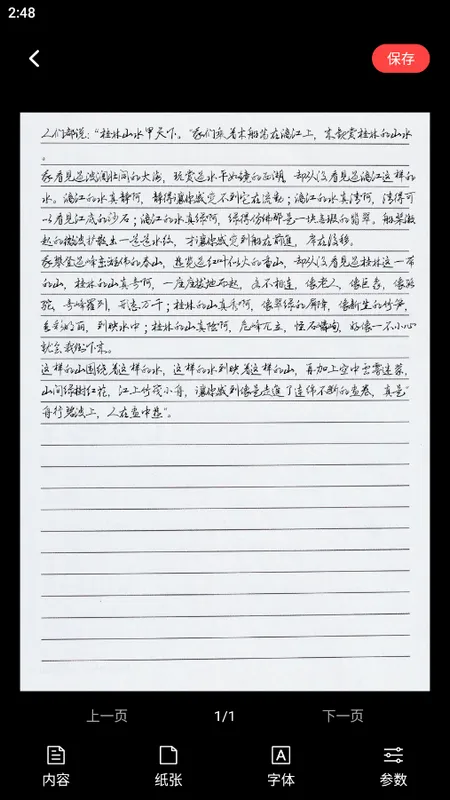 2:48
保存
人们都说：“桂林山水甲天下。”我们乘着木船荡在漓江上，来观赏桂林的山水
。
我看见过波澜壮阔的大海，玩赏过水平如镜的西湖，却从没看见过漓江这样的
水。漓江的水真静啊，静得让你感觉不到它在流动；漓江的水真清啊，清得可
以看见江底的沙石；漓江的水真绿啊，绿得仿佛那是一块无瑕的翡翠。船桨激
起的微波扩散出一道道水纹，才让你感觉到船在前进，岸在后移。
我攀登过峰峦雄伟的泰山，游览过红叶似火的香山，却从没看见过桂林这一带
的山，桂林的山真奇啊，一座座拔地而起，各不相连，像老人，像巨象，像骆
驼，奇峰罗列，形态万千；桂林的山真秀啊，像翠绿的屏障，像新生的竹笋，
色彩明丽，倒映水中；桂林的山真险啊，危峰兀立，怪石嶙峋，好像一不小心
就会栽倒下来。
这样的山围绕着这样的水，这样的水倒映着这样的山，再加上空中云雾迷蒙，
山间绿树红花，江上竹筏小舟，让你感到像是走进了连绵不断的画卷，真是“
舟行碧波上，人在画中游”。
上一页
1/1
下一页
内容
纸张
字体
参数